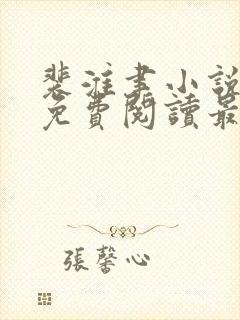 裴淮書小說
免費閱讀最
張馨心